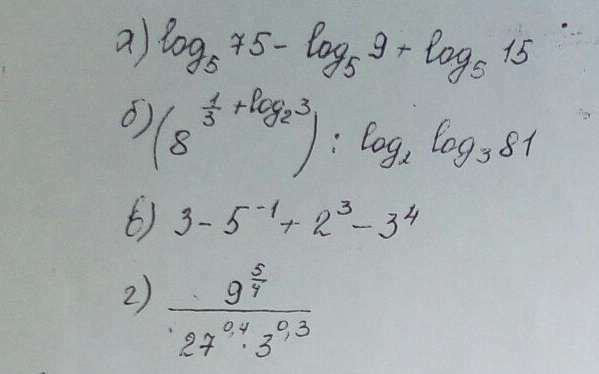 а) log₅ 75 - log₅ 9 + log₅ 15
б) (8^(1/3 + log₂ 3)) : log₂ log₃ 81
в) 3 - 5⁻¹ + 2³ - 3⁴
г) 9^(5/4) / (27^0,4 · 3^0,3)